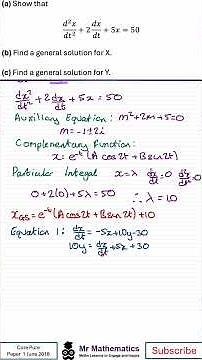 (a) Show that
d²x/dt² + 2 dx/dt + 5x = 50
(b) Find a general solution for X.
(c) Find a general solution for Y.
dx²/dt² + 2dx/dt + 5x = 50
Auxiliary Equation: m²+2m+5=0
m = -1±2i
Complementary Function:
x = e^-t (A cos2t + B sin2t)
Particular Integral x=λ dx/dt=0 d²x/dt²=0
0+2(0)+5λ = 50 ∴ λ = 10
xGS = e^-t (A cos2t + B sin2t) + 10
Equation 1: dx/dt = -5x+10y-30
10y = dx/dt + 5x + 30
Core Pure
Paper 1 June 2018
Mr Mathematics
Maths Lessons to Engage and Inspire
Subscribe